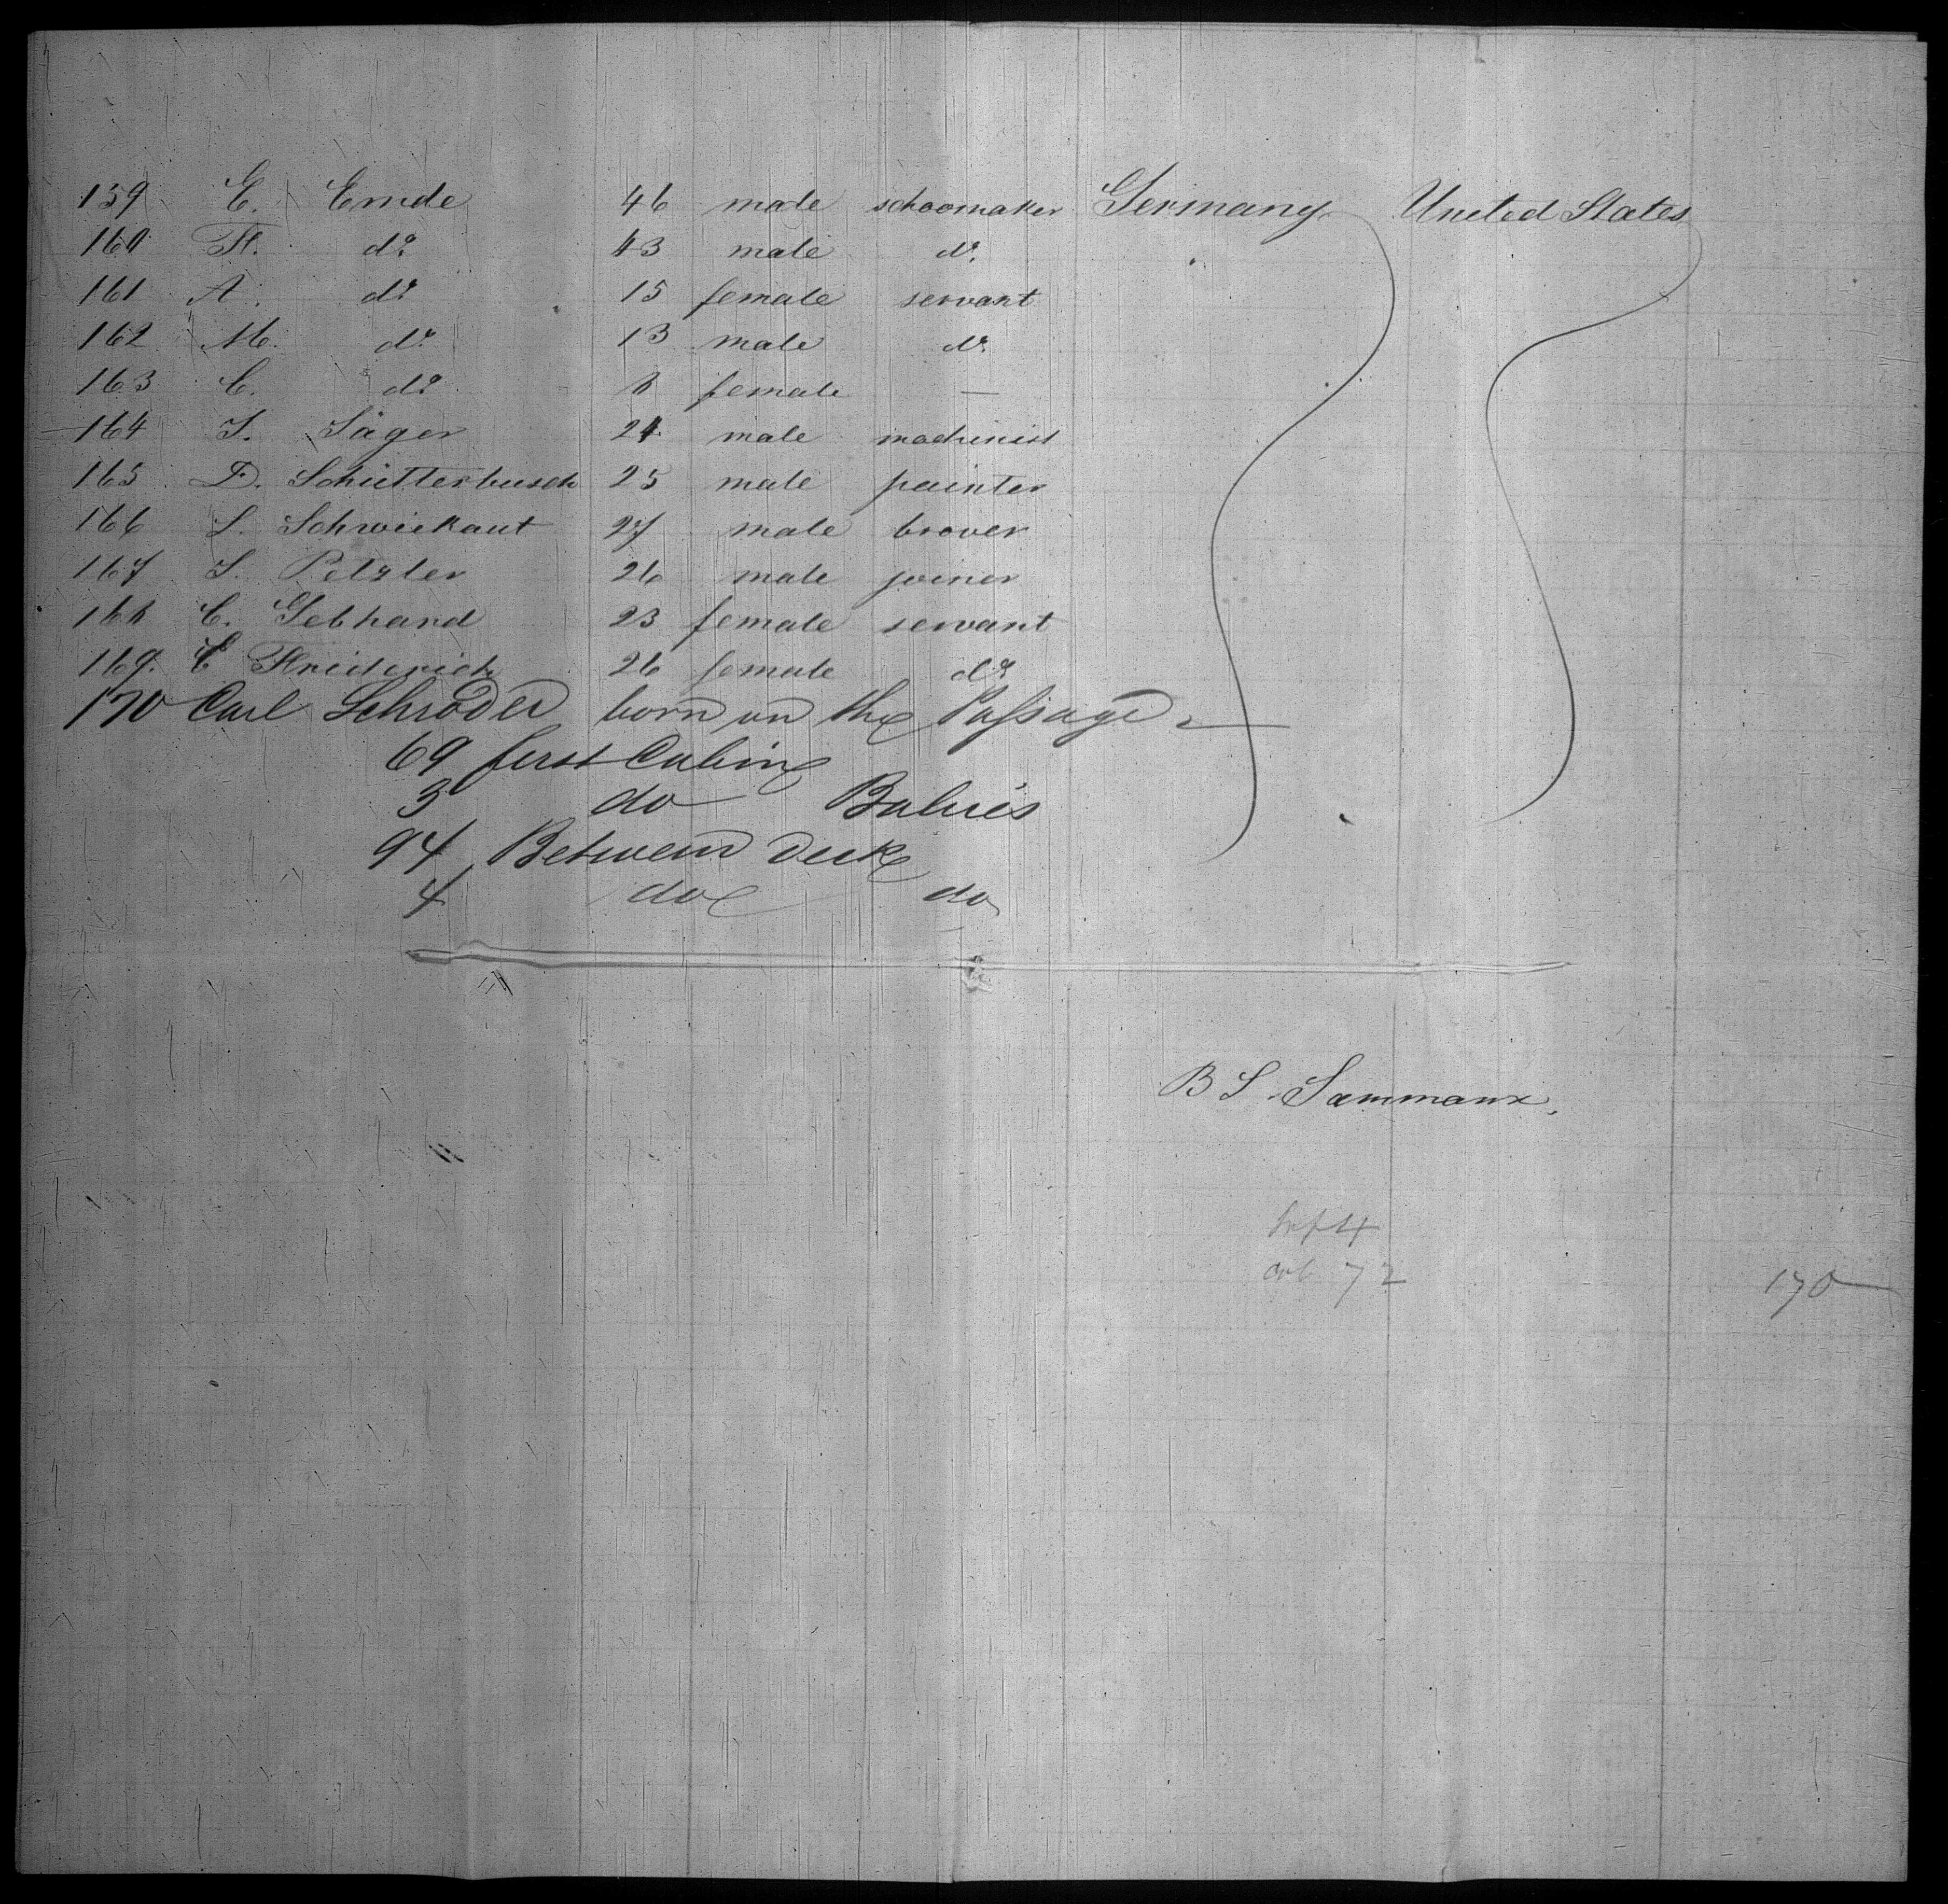 159 E. Emde 46 male schoomaker Germany United States
160 H. do 43 male do
161 A. do 15 female servant
162 M. do 13 male do
163 C. do 8 female —
164 J. Jäger 24 male machinist
165 D. Schütterbusch 25 male painter
166 L. Schwiekaut 27 male brover
167 J. Petzler 26 male joiner
168 C. Gebhard 23 female servant
169. C Friederich 26 female do
170 Carl Schröder born on the Passage
69 first Cabin
3 do Babies
94 Between deck
4 do do
B S. Sammann.
72
170